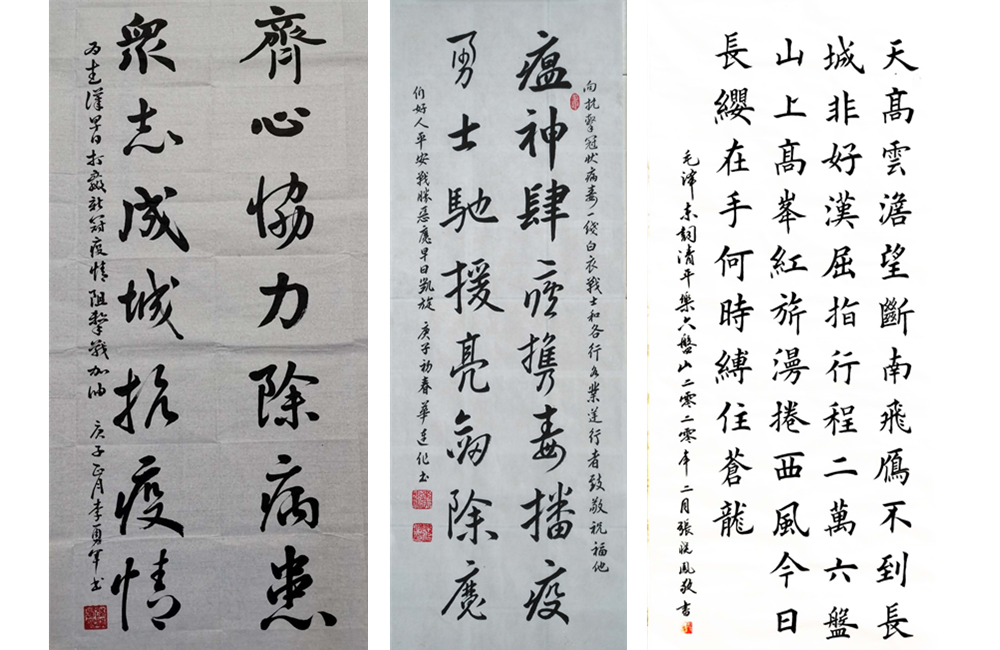 齊心協力除病患
衆志成城抗疫情
为走漢早日打贏新冠疫情阻擊戰加油
庚子正月李勇軍书
瘟神肆虐携毒播疫
勇士馳援亮劍除魔
向抗擊冠狀病毒一线白衣戰士和各行各業逆行者致敬祝福他
们好人平安戰勝惡魔早日凱旋 庚子初春華连化书
天高雲澹望斷南飛鴈不到長
城非好漢屈指行程二萬六盤
山上高峯紅旂漫捲西風今日
長纓在手何時縛住蒼龍
毛澤東詞清平樂六盤山二零二零年二月張晓風敬書